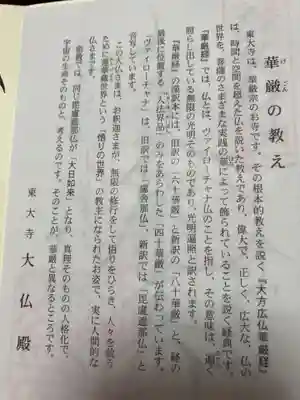 華厳の教え
けごん
東大寺は、華厳宗のお寺です。その根本的教えを説く『大方広仏華厳経』
は、時間と空間を越えた仏を説いた教えであり、偉大で、正しく、広大な、仏の
世界を、菩薩のさまざまな実践の華によって飾られていることを説く経典です。
『華厳経』では、仏とは、ヴァイローチャナ仏のことを指し、その意味は、遍く
照らし出している無限の光明そのものであり、光明遍照と訳されます。
『華厳経』の漢訳本には、旧訳の「六十華厳」と新訳の「八十華厳」と、経の
最後に位置する「入法界品」のみをあらわした「四十華厳」が伝わっています。
「ヴァイローチャナ」は、旧訳では「盧舎那仏」、新訳では「毘盧遮那仏」と
音写しています。
この大仏さまは、お釈迦さまが、無限の修行をして悟りをひらき、人々を救う
ために蓮華蔵世界という「悟りの世界」の教主になられたお姿で、実に人間的な
仏さまです。
密教では、同じ毘盧遮那仏が「大日如来」となり、真理そのものの人格化で、
宇宙の生命そのものと、考えるのです。そのことが、華厳と異なるところです。
東大寺 大仏殿